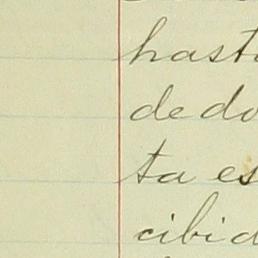 hast
de do
ta es
cibid